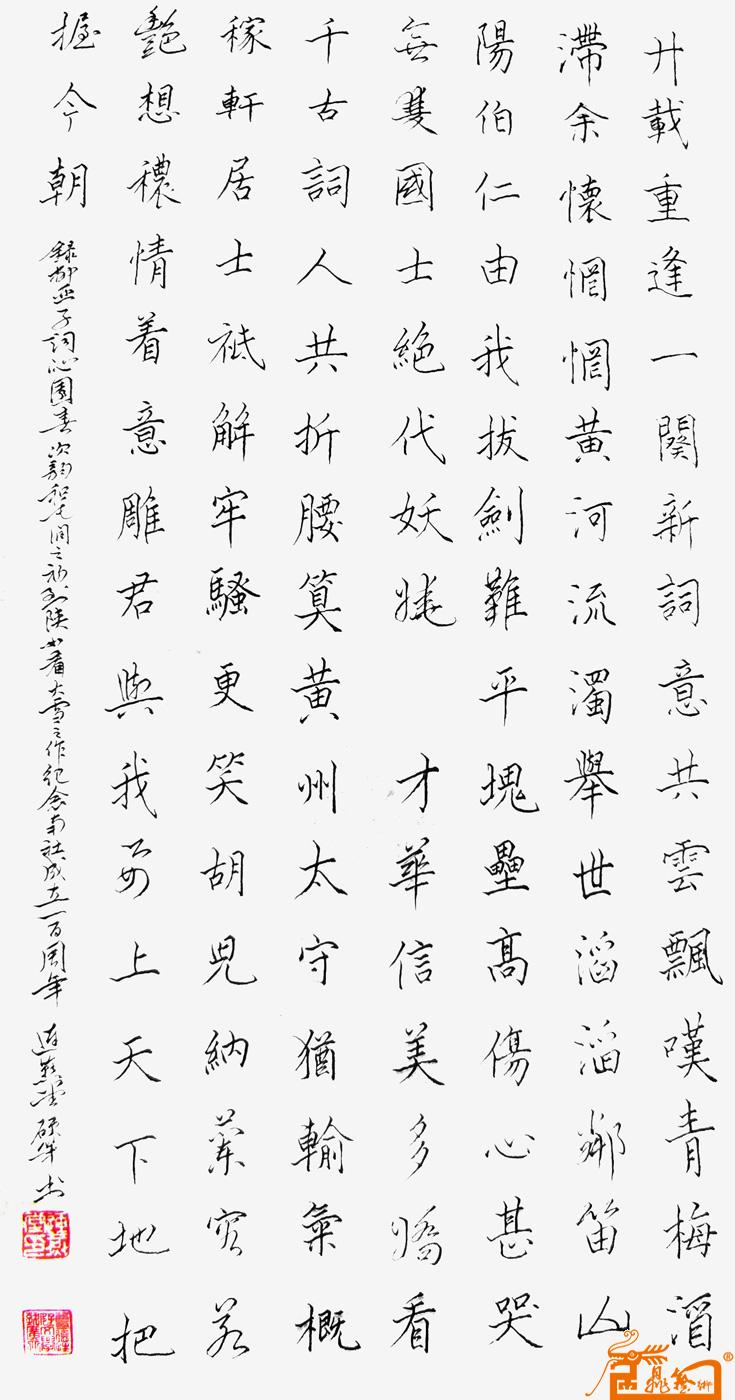 廿載重逢一闋新詞意共雲飄嘆青梅酒
滯余懷惘惘黃河流濁舉世滔滔鄰笛山
陽伯仁由我拔劍難平塊壘高傷心甚哭
無雙國士絕代妖嬈 才華信美多嬌看
千古詞人共折腰算黃州太守猶輸氣概
稼軒居士祗解牢騷更笑胡兒納蘭容若
艷想穠情着意雕君與我要上天下地把
握今朝
錄柳亞子詞沁園春次韵和毛潤之初到陝北看大雪之作紀念南社成立一百周年
书